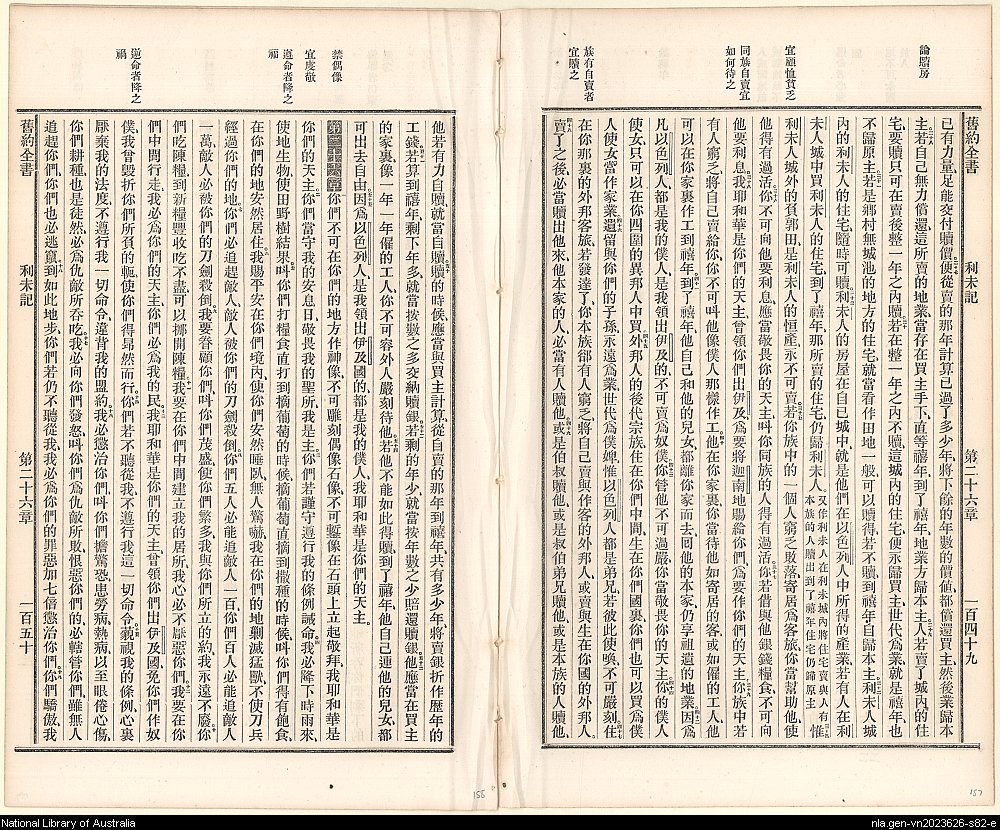 論贖房
宜顧恤貧乏
同族自賣宜如何待之
族有自賣者宜贖之
舊約全書 利未記 第二十六章 一百四十九
已有力量足能交付贖價便從賣的那年計算已過了多少年將下餘的年數的價値都償還買主然後業歸本
主若自己無力償還這所賣的地業當存在買主手下直等禧年到了禧年地業方歸本主人若賣了城內的住
宅要贖只可在賣後整一年之內贖若在整一年之內不贖這城內的住宅便永歸買主世代爲業就是禧年也
不歸原主若是鄉村無城池的地方的住宅就當看作田地一般可以贖得若不贖到禧年自歸本主利未人城
內的利未人的住宅隨時可贖利未人的房屋在自己城中就是他們在以色列人中所得的產業若有人在利
未人城中買利未人的住宅到了禧年那所賣的住宅仍歸利未人又作利未人在利未城內將住宅賣與人有本族的人贖出到了禧年住宅仍歸原主惟
利未人城外的負郭田是利未人的恒產永不可賣若你族中的一個人窮乏敗落寄居爲客旅你當幫助他使
他得有過活你不可向他要利息應當敬畏你的天主叫你同族的人得有過活你若借與他銀錢糧食不可向
他要利息我耶和華是你們的天主曾領你們出伊及爲要將迦南地賜給你們爲要作你們的天主你族中若
有人窮乏將自己賣給你你不可叫他像僕人那樣作工他在你家裏你當待他如寄居的客或如僱的工人他
可以在你家裏作工到禧年到了禧年他自己和他的兒女都離你家而去回他的本家仍享祖遺的地業因爲
凡以色列人都是我的僕人是我領出伊及的不可賣爲奴僕你管他不可過嚴你當敬畏你的天主你的僕人
使女只可以在你四圍的異邦人中買外邦人的後代宗族住在你們中間生在你們國裏你們也可以買爲僕
人使女當作家業遺留與你們的子孫永遠爲業世代爲僕婢惟以色列人都是弟兄若彼此使喚不可嚴刻住
在你那裏的外邦客旅若發達了你本族郤有人窮乏將自己賣與作客的外邦人或賣與生在你國的外邦人
賣了之後必當贖出他來他本家的人必當有人贖他或是伯叔贖他或是叔伯弟兄贖他或是本族的人贖他
禁偶像
宜虔敬
遵命者降之福
逆命者降之禍
他若有力自贖就當自贖贖的時候應當與買主計算從自賣的那年到禧年共有多少年將賣銀折作歷年的
工錢若算到禧年剩下年多就當按數之多交納贖銀若剩的年少就當按年數之少賠還贖銀他應當在買主
的家裏像一年一年僱的工人你不可容外人嚴刻待他若他不能如此得贖到了禧年他自己連他的兒女都
可出去自由因爲以色列人是我領出伊及國的都是我的僕人我耶和華是你們的天主
第二十六章你們不可在你們的地方作神像不可雕刻偶像石像不可鏨像在石頭上立起敬拜我耶和華是
你們的天主你們當守我的安息日敬畏我的聖所我是主你們若謹守遵行我的條例誡命我必降下時雨來
使地生物使田野樹結果叫你們打糧食直打到摘葡萄的時候摘葡萄直摘到撒種的時候叫你們得有飽食
在你們的地安然居住我賜平安在你們境內使你們安然睡臥無人驚嚇我在你們的地剿滅猛獸不使刀兵
經過你們的地你們必追趕敵人敵人被你們的刀劍殺倒你們五人必能追敵人一百你們百人必能追敵人
一萬敵人必被你們的刀劍殺倒我要眷顧你們叫你們茂盛使你們繁多我與你們所立的約我永遠不廢你
們吃陳糧到新糧豐收吃不盡可以挪開陳糧我要在你們中間建立我的居所我心必不厭惡你們我要在你
們中間行走我必爲你們的天主你們必爲我的民我耶和華是你們的天主曾領你們出伊及國免你們作奴
僕我曾毀折你們所負的軛使你們得昂然而行你們若不聽從我不遵行我這一切命令藐視我的條例心裏
厭棄我的法度不遵行我一切命令違背我的盟約我必懲治你們叫你們擔驚恐患勞病熱病以至眼倦心傷
你們耕種也是徒然必爲仇敵所吞吃我必向你們發怒叫你們爲仇敵所敗恨惡你們的必轄管你們雖無人
追趕你們你們也必逃竄到如此地步你們若仍不聽從我我必爲你們的罪惡加七倍懲治你們你們驕傲我
舊約全書 利未記 第二十六章 一百五十
156
157
National Library of Australia
nla.gen-vn2023626-s82-e